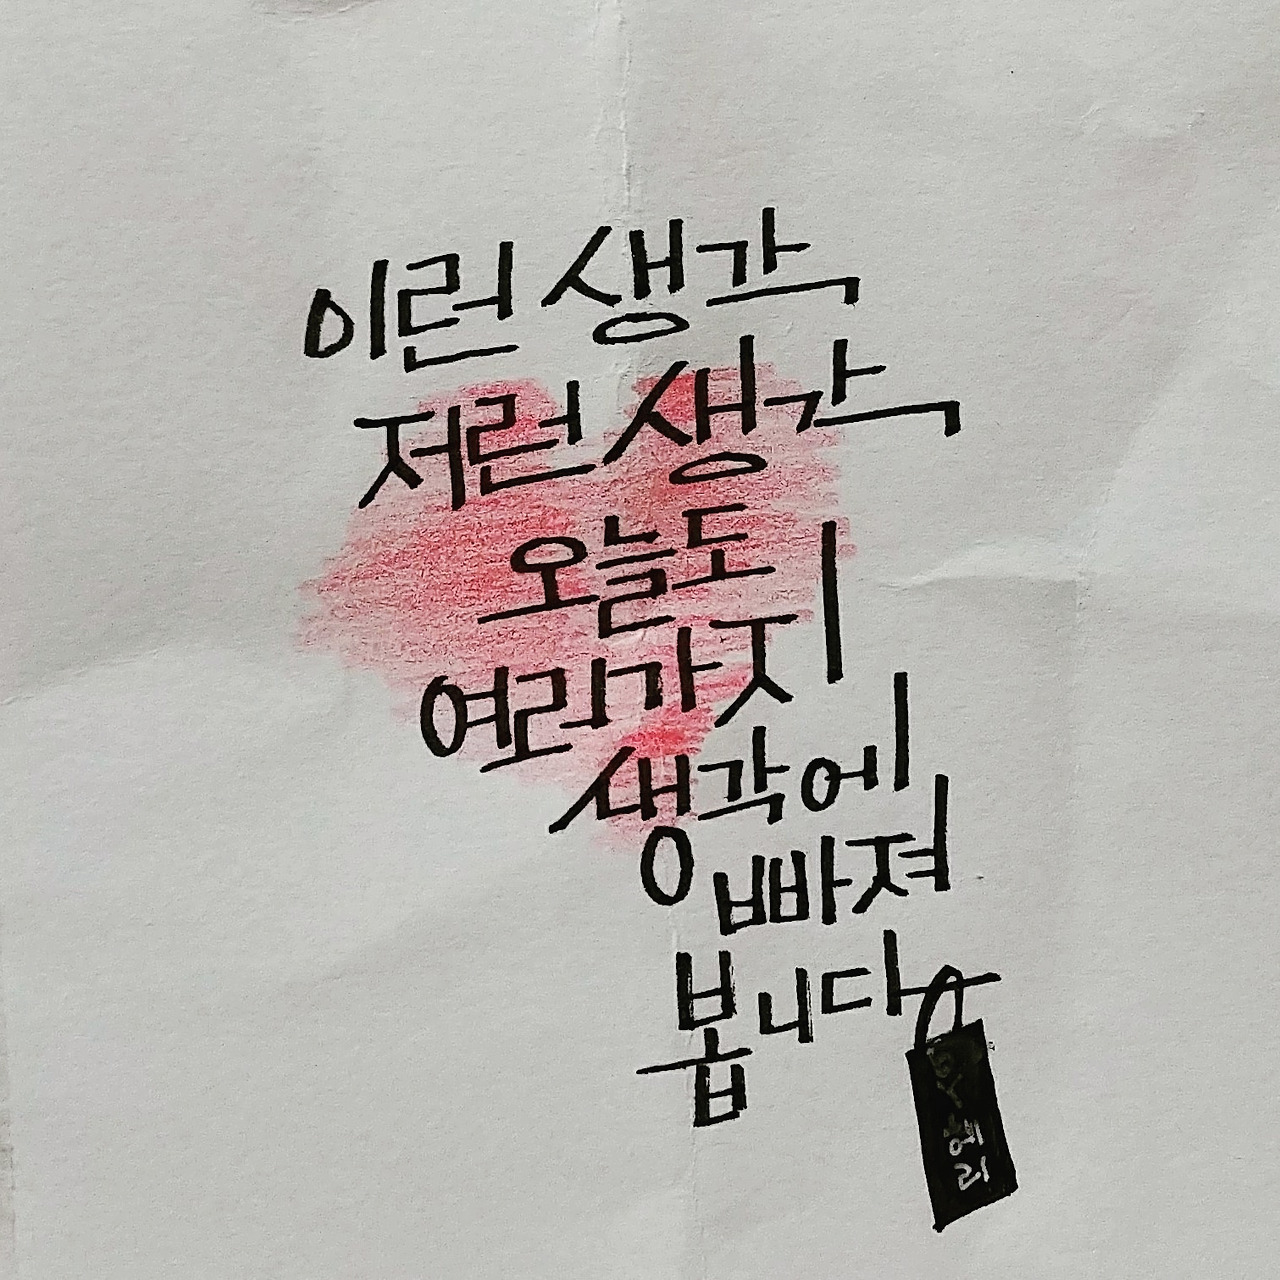 이런 생각
저런 생각
오늘도
여러가지
생각에
빠져
봅니다
혜
리